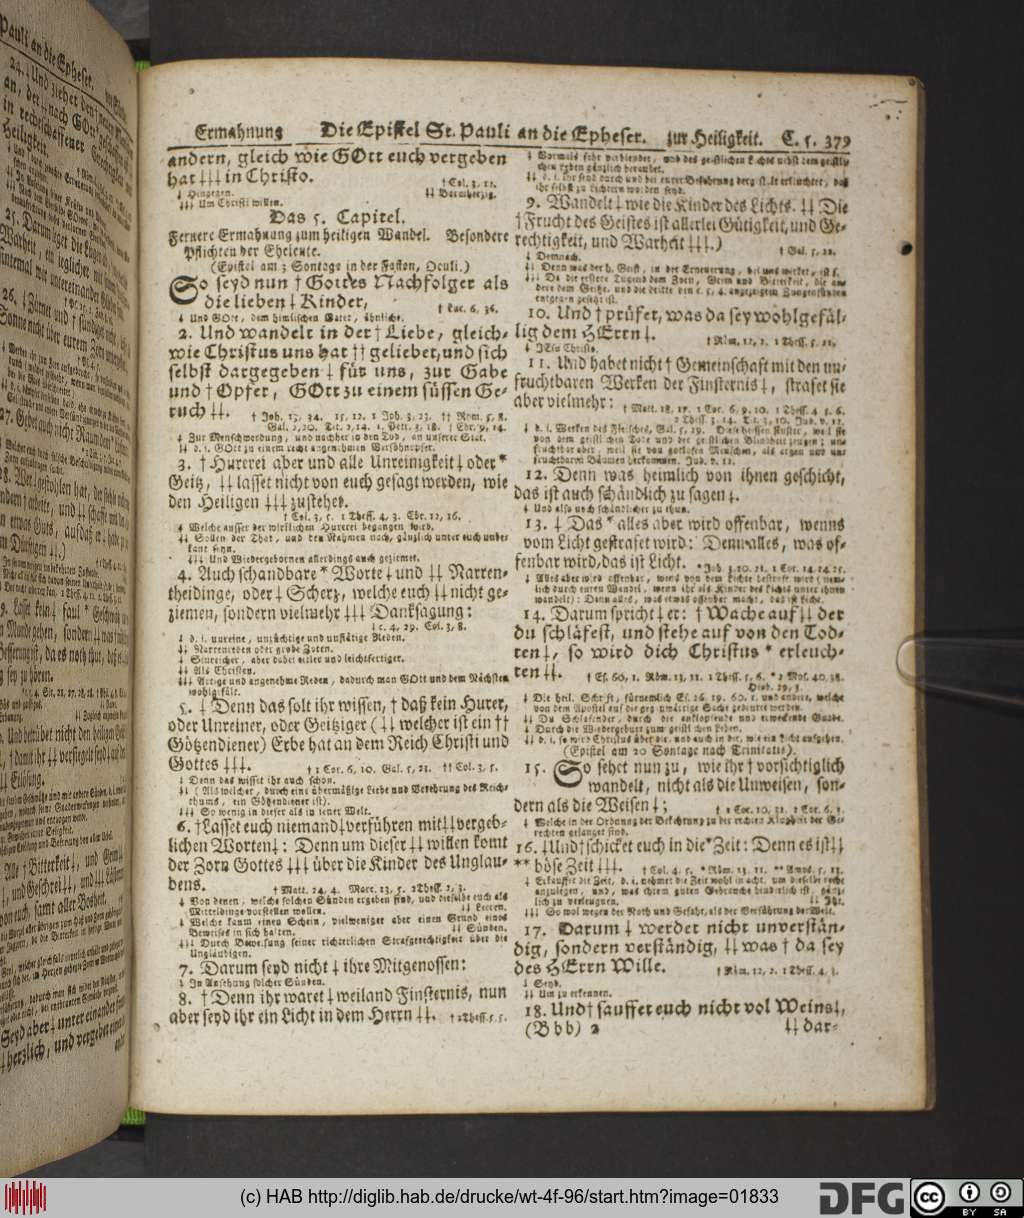 Ermahnung Die Epistel St. Pauli an die Epheser. zur Heiligkeit. C. 5. 379
andern, gleich wie GOtt euch vergeben
hat ⸸⸸⸸ in Christo. † Col. 3, 13.
⸸ Hingegen. ⸸⸸ Barmherzig.
⸸⸸⸸ Um Christi willen.
Das 5. Capitel.
Fernere Ermahnung zum heiligen Wandel. Besondere
Pflichten der Eheleute.
(Epistel am 3 Sontage in der Fasten, Oculi.)
So seyd nun † Gottes Nachfolger als
die lieben ⸸ Kinder, † Luc. 6, 36.
⸸ Und GOtt, dem himlischen Vater, ähnliche.
2. Und wandelt in der † Liebe, gleich-
wie Christus uns hat †† geliebet, und sich
selbst dargegeben ⸸ für uns, zur Gabe
und † Opfer, GOtt zu einem süssen Ge-
ruch ⸸⸸. † Joh. 13, 34. 15, 12. 1 Joh. 3, 23. †† Röm. 5, 8.
Gal. 2, 20. Tit. 2, 14. 1. Petr. 3, 18. † Ebr. 9, 14.
⸸ Zur Menschwerdung, und nachher in den Tod, an unserer Stat.
⸸⸸ d. i. GOtt zu einem recht angenehmen Versöhnopfer.
3. † Hurerei aber und alle Unreinigkeit ⸸ oder *
Geitz, ⸸⸸ lasset nicht von euch gesagt werden, wie
den Heiligen ⸸⸸⸸ zustehet.
† Col. 3, 5. 1 Thess. 4, 3. Ebr. 12, 16.
⸸ Welche ausser der wirklichen Hurerei begangen wird.
⸸⸸ Sollen der That, und dem Nahmen nach, gänzlich unter euch unbe-
kant seyn.
⸸⸸⸸ Und Wiedergebornen allerdings auch geziemet.
4. Auch schandbare * Worte ⸸ und ⸸⸸ Narren-
theidinge, oder ⸸ Scherz, welche euch ⸸⸸ nicht ge-
ziemen, sondern vielmehr ⸸⸸⸸ Danksagung:
† c. 4, 29. Col. 3, 8.
⸸ d. i. unreine, unzüchtige und unflätige Reden.
⸸⸸ Narrenreden oder grobe Zoten.
⸸ Sinreicher, aber dabei eitler und leichtfertiger.
⸸⸸ Als Christen.
⸸⸸⸸ Artige und angenehme Reden, dadurch man GOtt und dem Nächsten
wohlgefält.
5. ⸸ Denn das solt ihr wissen, † daß kein Hurer,
oder Unreiner, oder Geitziger (⸸⸸ welcher ist ein ††
Götzendiener) Erbe hat an dem Reich Christi und
Gottes ⸸⸸⸸. † 1 Cor. 6, 10. Gal. 5, 21. †† Col. 3, 5.
⸸ Denn das wisset ihr auch schon.
⸸⸸ (Als welcher, durch eine übermäßige Liebe und Verehrung des Reich-
thums, ein Götzendiener ist).
⸸⸸⸸ So wenig in dieser als in jener Welt.
6. † Lasset euch niemand ⸸ verführen mit ⸸⸸ vergeb-
lichen Worten ⸸: Denn um dieser ⸸⸸ willen komt
der Zorn Gottes ⸸⸸⸸ über die Kinder des Unglau-
bens. † Matt. 24, 4. Marc. 13, 5. 2 Thess. 2, 3.
⸸ Von denen, welche solchen Sünden ergeben sind, und dieselbe euch als
Mitteldinge vorstellen wollen. ⸸⸸ Leeren.
⸸ Welche kaum einen Schein, vielweniger aber einen Grund eines
Beweises in sich halten. ⸸⸸ Sünden.
⸸⸸⸸ Durch Beweisung seiner richterlichen Strafgerechtigkeit über die
Ungläubigen.
7. Darum seyd nicht ⸸ ihre Mitgenossen:
⸸ In Ansehung solcher Sünden.
8. † Denn ihr waret ⸸ weiland Finsternis, nun
aber seyd ihr ein Licht in dem Herrn ⸸⸸. † 1 Thess. 5, 5.
⸸ Vormals sehr verblendet, und des geistlichen Lichts nebst dem geistli-
chen Leben gänzlich beraubet.
⸸⸸ d. i. ihr seyd durch und bei eurer Bekehrung dergestalt erleuchtet, daß
ihr selbst zu Lichtern worden seyd.
9. Wandelt ⸸ wie die Kinder des Lichts. ⸸⸸ Die
† Frucht des Geistes ist allerlei Gütigkeit, und Ge-
rechtigkeit, und Warheit ⸸⸸⸸.) † Gal. 5, 22.
⸸ Demnach.
⸸⸸ Denn was der h. Geist, in der Erneuerung, bei uns wirket, ist f.
⸸⸸⸸ Da die erstere Tugend dem Zorn, Grim und Bitterkeit, die an-
dere dem Geitze, und die dritte den c. 5, 4. angezeigten Zungensünden
entgegen gesetzt ist.
10. Und † prüfet, was da sey wohlgefäl-
lig dem HErrn ⸸. † Röm. 12, 2. 1 Thess. 5, 21.
⸸ JEsu Christo.
11. Und habet nicht † Gemeinschaft mit den un-
fruchtbaren Werken der Finsternis ⸸, strafet sie
aber vielmehr: † Matt. 18, 17. 1 Cor. 6, 9. 10. 1 Thess. 4, 5. 6.
2 Thess. 3, 14. Tit. 3, 10. Jud. v. 12.
⸸ d. i. Werken des Fleisches, Gal. 5, 19. Diese heissen finster, weil sie
von dem geistlichen Tode und der geistlichen Blindheit zeugen; un-
fruchtbar aber, weil sie von gotlosen Menschen, als argen und un-
fruchtbaren Bäumen herkommen, Jud. v. 12.
12. Denn was heimlich von ihnen geschicht,
das ist auch schändlich zu sagen ⸸.
⸸ Und also noch schändlicher zu thun.
13. ⸸ Das * alles aber wird offenbar, wenns
vom Licht gestrafet wird: Denn alles, was of-
fenbar wird, das ist Licht. * Joh. 3, 20. 21. 1 Cor. 14, 24. 25.
⸸ Alles aber wird offenbar, wens von dem Lichte bestraft wird (nem-
lich durch euren Wandel, wenn ihr als Kinder des Lichts unter ihnen
wandelt): Denn alles, was etwas offenbar macht, das ist Licht.
14. Darum spricht ⸸ er: † Wache auf ⸸⸸ der
du schläfest, und stehe auf von den Tod-
ten ⸸, so wird dich Christus * erleuch-
ten ⸸⸸. † Es. 60, 1. Röm. 13, 11. 1 Thess. 5, 6. * 2 Mos. 40, 38.
Hiob. 29, 3.
⸸ Die heil. Schrift, fürnemlich Es. 26, 19. 60, 1. und andere, welche
von dem Apostel auf die gegenwärtige Sache gedeutet werden.
⸸⸸ Du Schlafender, durch die anklopfende und erweckende Gnade.
⸸ Durch die Wiedergeburt zum geistlichen Leben.
⸸⸸ d. i. so wird Christus über dir, und auch in dir, wie ein Licht aufgehen.
(Epistel am 20 Sontage nach Trinitatis).
15. So sehet nun zu, wie ihr † vorsichtiglich
wandelt, nicht als die Unweisen, son-
dern als die Weisen ⸸; † 1 Cor. 10, 31. 2 Cor. 6, 1.
⸸ Welche in der Ordnung der Bekehrung zu der rechten Klugheit der Ge-
rechten gelanget sind.
16. ⸸ Und † schicket euch in die * Zeit: Denn es ist ⸸⸸
** böse Zeit ⸸⸸⸸. † Col. 4, 5. * Röm. 13, 11. ** Amos. 5, 13.
⸸ Erkauffet die Zeit, d. i. nehmet die Zeit wohl in acht, um dieselbe recht
anzulegen, und, was ihrem guten Gebrauche hinderlich ist, gänz-
lich zu verleugnen. ⸸⸸ Jtzt.
⸸⸸⸸ So wol wegen der Noth und Gefahr, als der Verführung der Welt.
17. Darum ⸸ werdet nicht unverstän-
dig, sondern verständig, ⸸⸸ was † da sey
des HErrn Wille. † Röm. 12, 2. 1 Thess. 4, 3.
⸸ Seyd.
⸸⸸ Um zu erkennen.
18. Und † sauffet euch nicht vol Weins ⸸,
(Bbb) 2 ⸸⸸ dar-
(c) HAB http://diglib.hab.de/drucke/wt-4f-96/start.htm?image=01833
DFG
CC BY SA